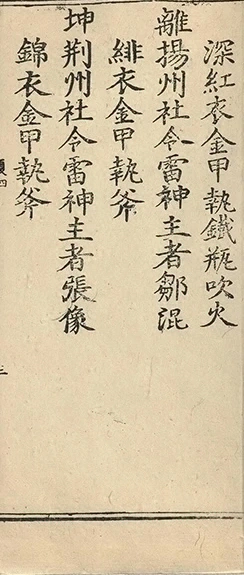 深紅衣金甲執鐵瓶吹火
離揚州社令雷神主者鄒混
緋衣金甲執斧
坤荆州社令雷神主者張像
錦衣金甲執斧